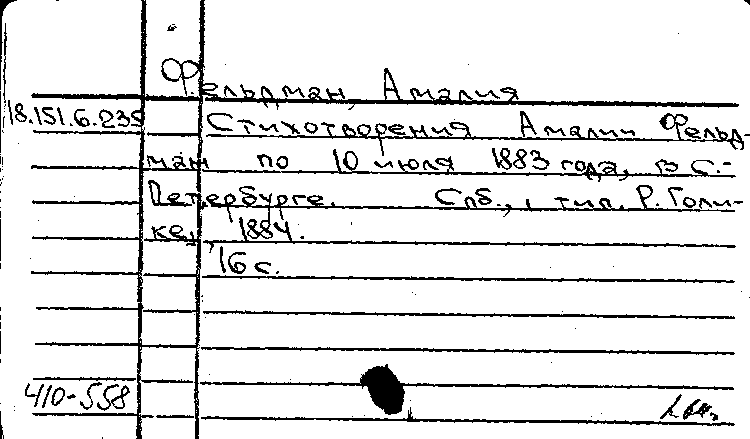 Фельдман, Амалия
18.151.6.235 Стихотворения Амалии Фельд-
ман по 10 июля 1883 года, в С.-
Петербурге. Спб., тип. Р. Голи-
ке, 1884.
16 с.
410-558